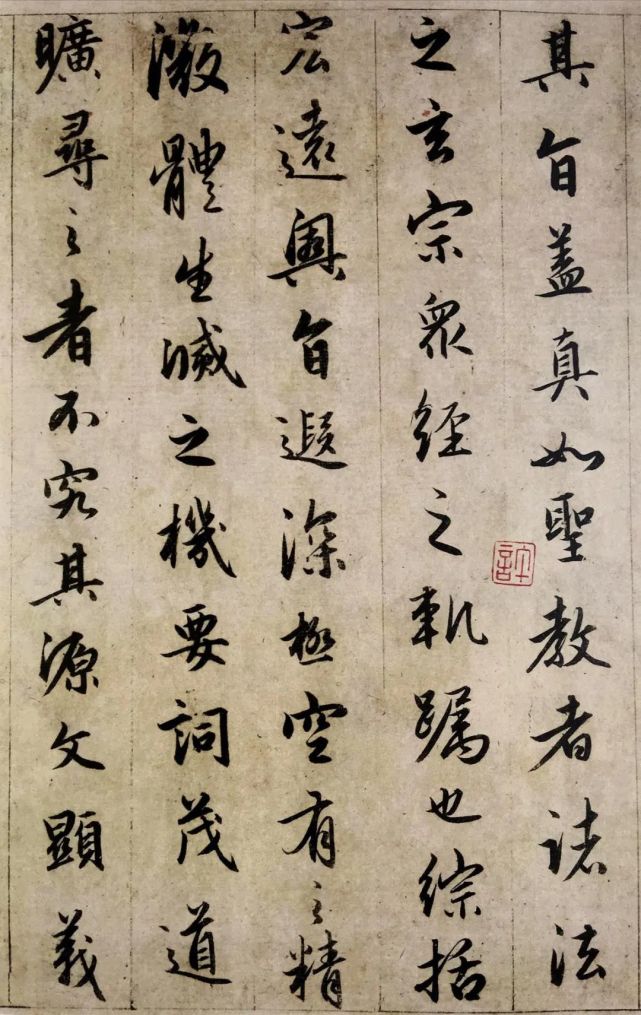 其旨蓋真如聖教者諸法
之玄宗衆經之軌躅也綜括
宏遠奧旨遐深極空有之精
微體生滅之機要詞茂道
曠尋之者不究其源文顯義